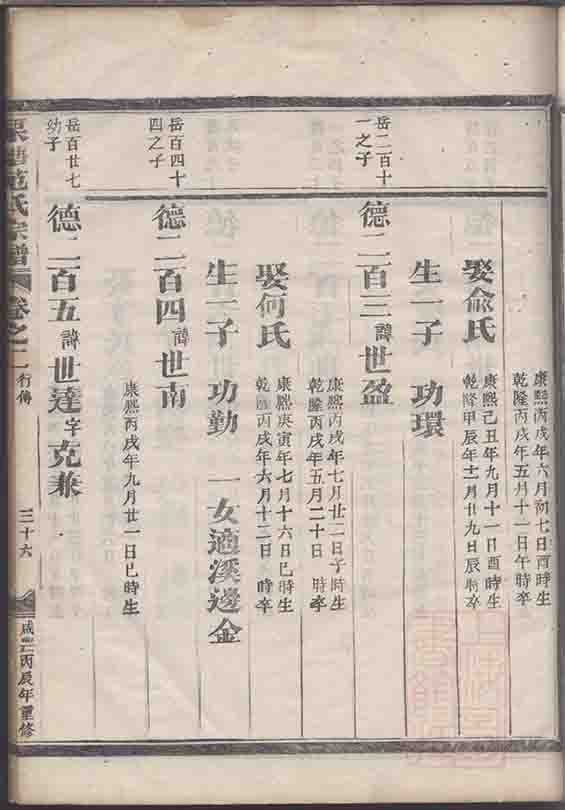 康熙丙戌年六月初七日酉時生
乾隆丙戌年五月十一日午時卒
娶俞氏
康熙己丑年九月十一日酉時生
乾隆甲辰年十二月廿九日辰時卒
生一子 功環
岳二百十
一之子
德二百三 諱 世盈
康熙丙戌年七月廿二日子時生
乾隆丙戌年五月二十日 時卒
娶何氏
康熙庚寅年七月十六日巳時生
乾隆丙戌年六月十二日 時卒
生一子 功勤 一女適溪邊金
岳百四十
四之子
德二百四 諱 世南
康熙丙戌年九月廿一日巳時生
岳百廿七
幼子
德二百五 諱 世達 字 克兼
范氏宗譜 卷之二 行傳 三十六 咸豐丙辰年重修